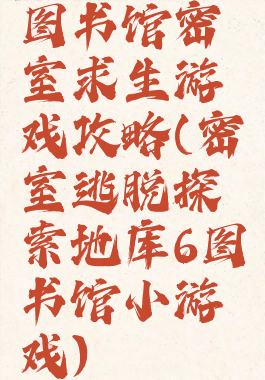 图书馆密
室求生游
戏攻略(密
室逃脱探
索地库6图
书馆小游
戏)